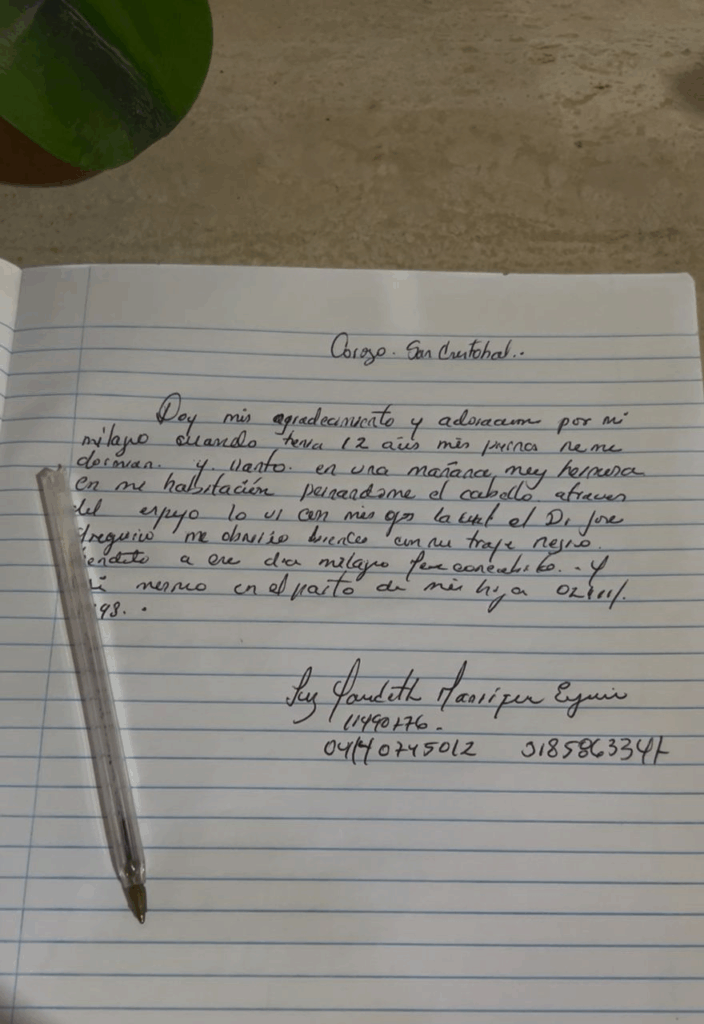 Corozo. San Cristobal..
Doy mis agradecimiento y adoracion por mi
milagro cuando tenia 12 años mis piernas se me
dormian. y llanto. en una mañana, muy hermosa
en me habitación peinandome el cabello. atraves
del espejo lo vi con mis ojos la cual el D. Jose
Gregorio me con su traje negro.
a ese dia milagro fue concebido.. Y
mismo en el parto de mis hija 02
98. .
Luz Yaudeth Manriquez
11490776.
04140745012 3185863341